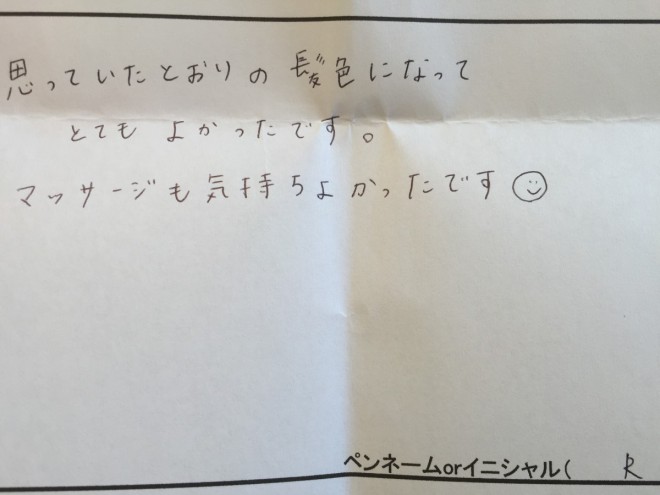 思っていたとおりの髪色になって
とてもよかったです。
マッサージも気持ちよかったです☺
ペンネームorイニシャル( R